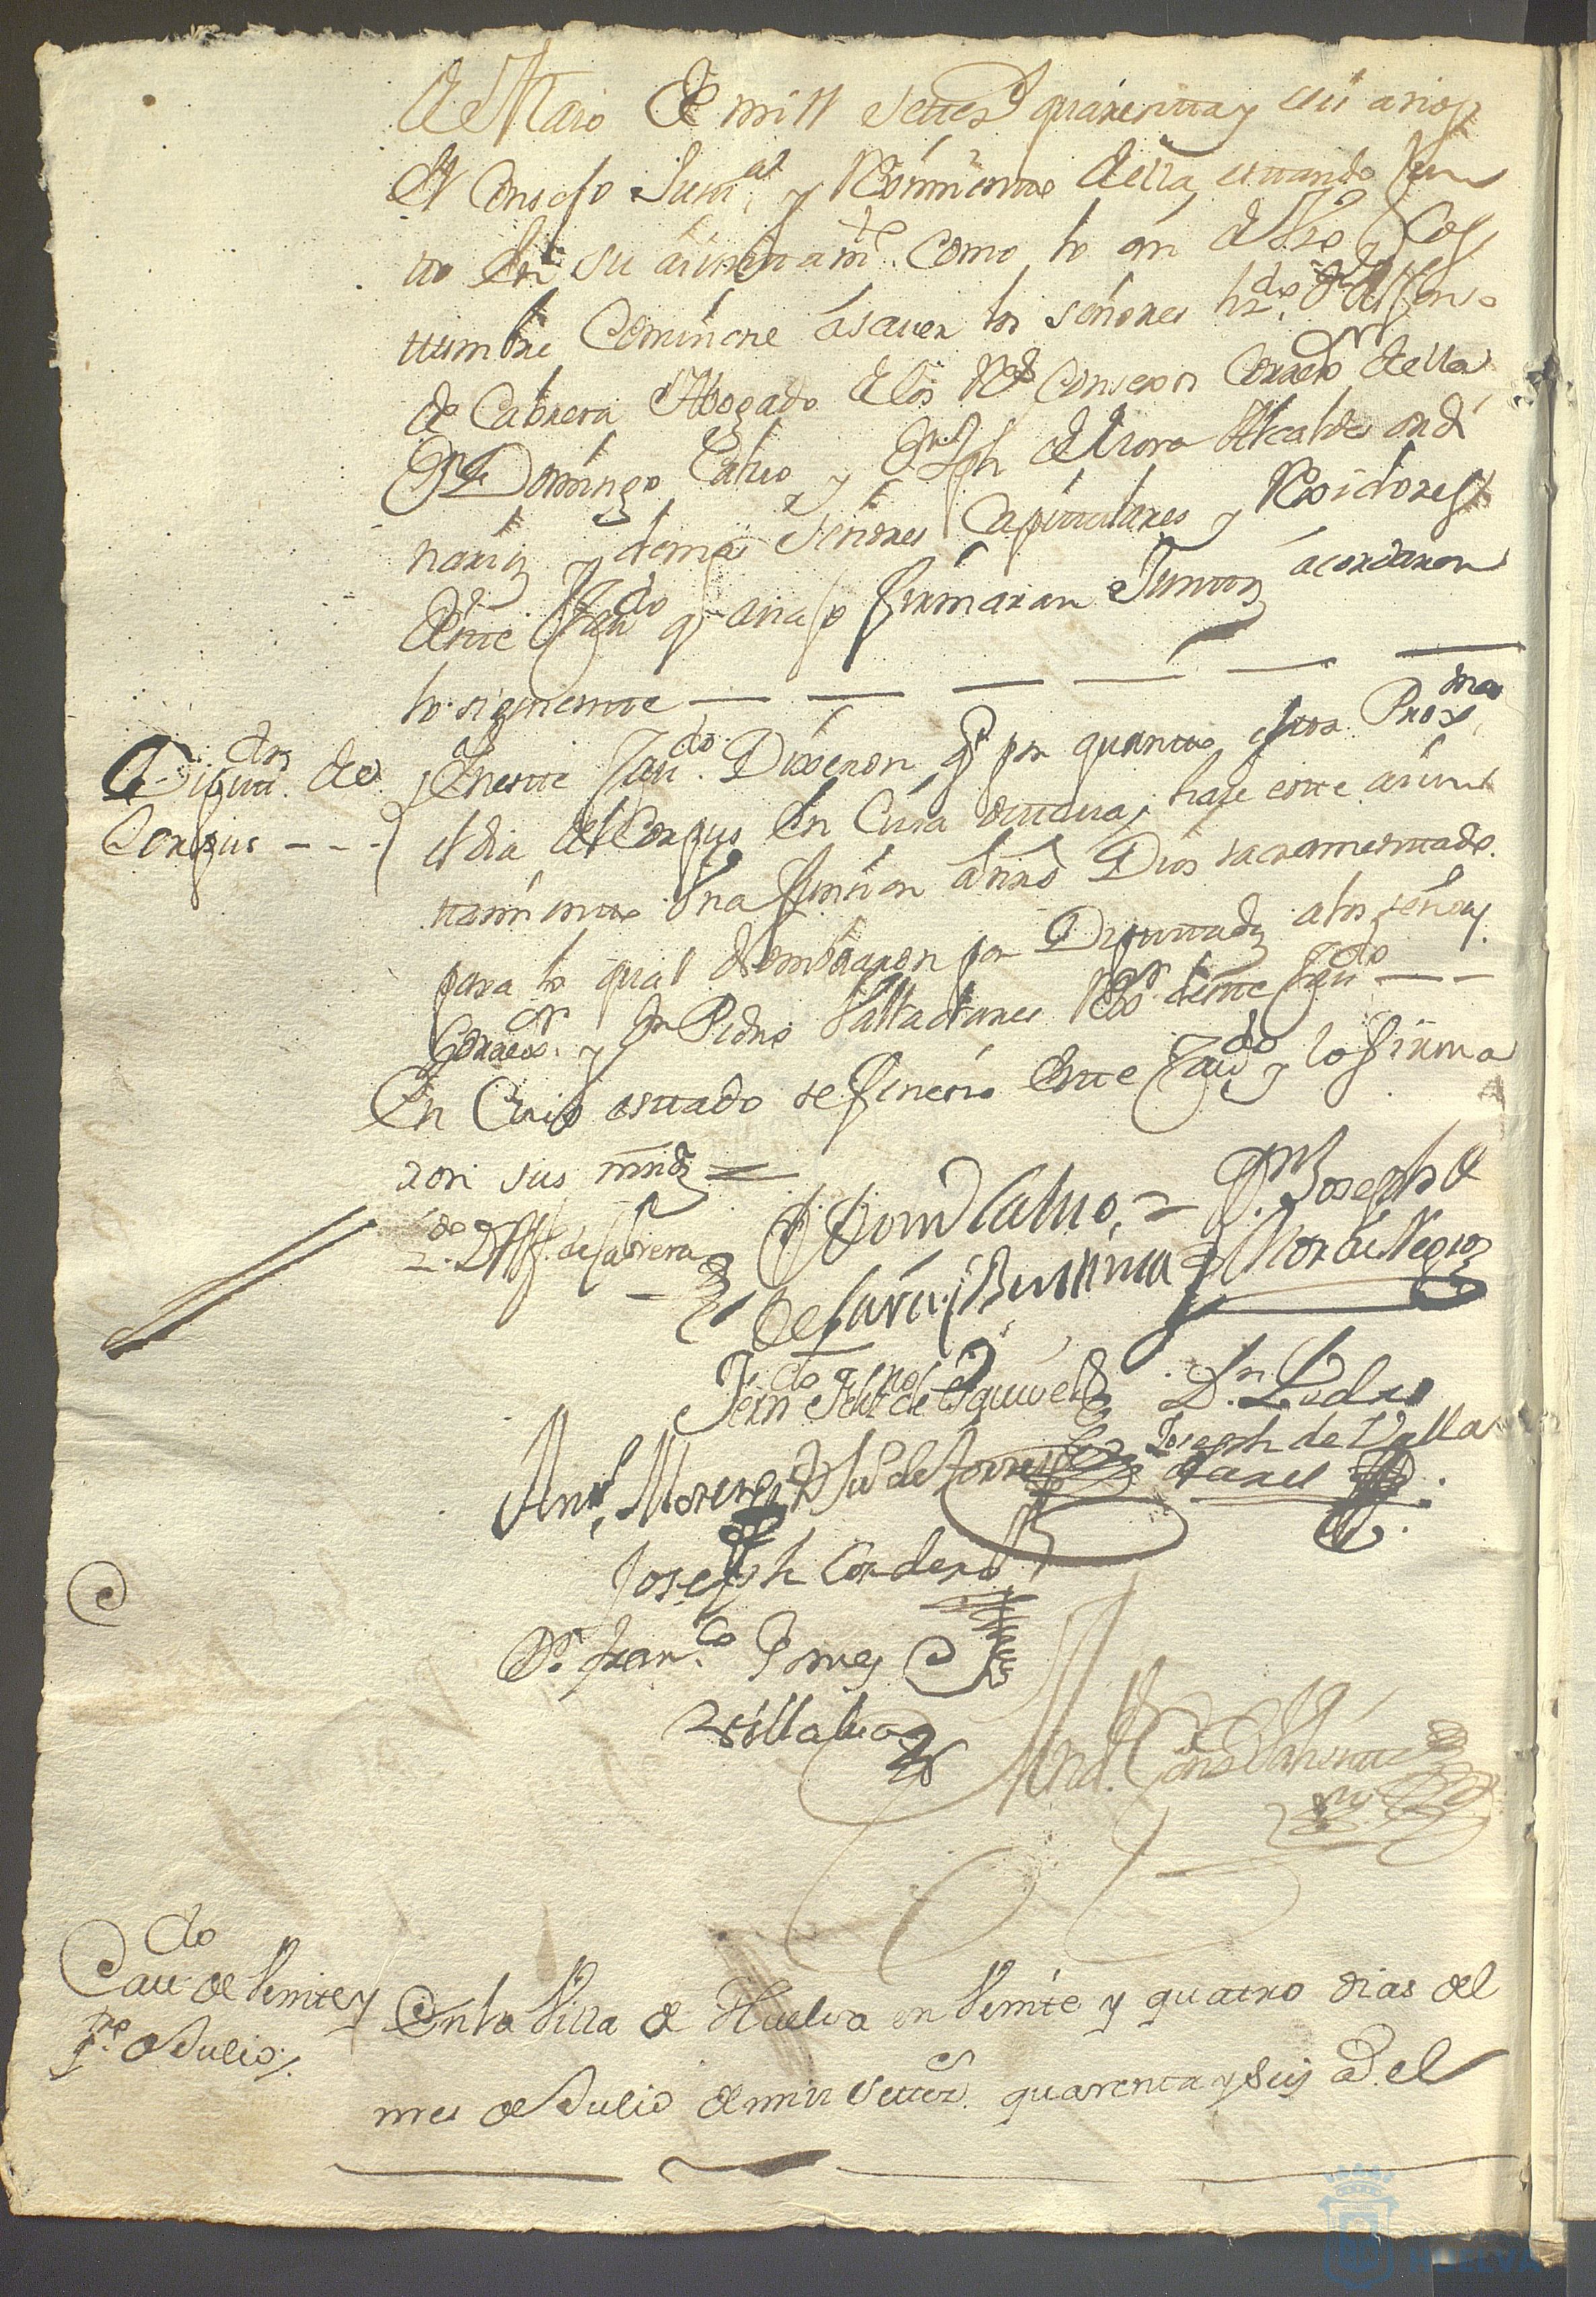 de Maio de mill settez.s quarentta y seis años
el Consejo Justt.al y Reximientto della, estando Jun
tto En su aiunttam.to como lo án de Vso y Cos
ttumbre Comiñene ásauer los señores liz.do Dn Alfonso
de Cabrera Abogado delos R.s Consexos Correx.or della
Dn Domingo Caluo y Dn Jph de Mora Alcaldes ordi
narios y demas señores Capittulares y Rexidores
destte Cau.do q auajo firmaran Junttos acordaron
lo siguientte
Diputt.dos de
Corpus - - -
Enestte Cau.do Dixeron q por quantto estta Prox.mo
el dia del Corpus En Cuia octtaua, haze estte aiun
ttamientto Vna funcion ánrro Dios sacramenttado
para lo qual Nombraron por Diputtados alos señores
Correx.or y Dn Pedro Valladares Rex.or destte Cau.do
En Cuio esttado se feneció estte Cau.do y lo firma
ron sus mrds =
L.do D Alf. de Cabrera
D Dom Caluo
Dn Joseph de
Mora Negro
De Garci Bustt
Fern.do de Esquivel
Dn Pedro
Joseph de Valla
dares
Ant.o Moreno
Ju.o de Torres
Joseph Cordero
Dn Fran.co Gomez
Villalua
Cau.do de Veinte y
q.tro de Julio
En la Villa de Huelva en Veinte y quatro dias del
mes de Julio de mill settez.s quarenta y seis a.s el
HUELVA